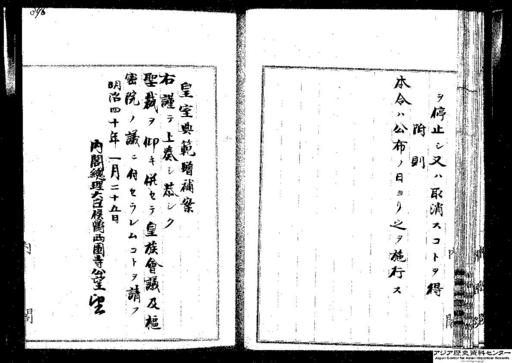 ヲ停止シ又ハ取消スコトヲ得
附則
本令ハ公布ノ日ヨリ之ヲ施行ス
皇室典範増補案
右謹テ上奏シ恭シク
聖裁ヲ仰キ併セテ皇族會議及樞
密院ノ議ニ付セラレムコトヲ請フ
明治四十年一月二十五日
內閣總理大臣侯爵西園寺公望
內閣
アジア歴史資料センター
Japan Center for Asian Historical Records